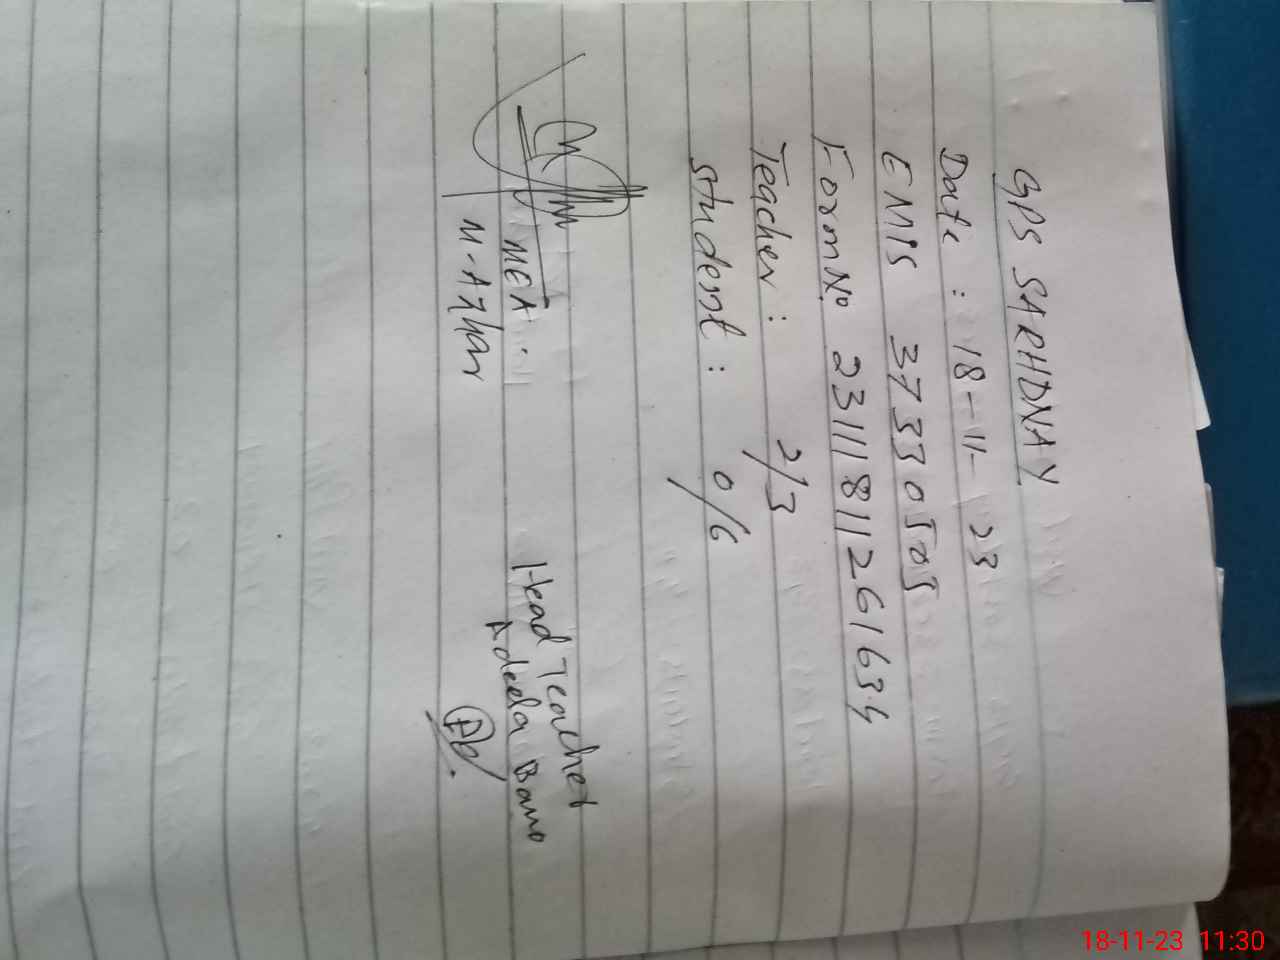 GPS SARHDNAY
Date : 18-11-23
EMIS 37330505
Form No 23111811261634
Teacher : 2/3
Student : 0/6
MEA.
M-Azhar
Head Teacher
Adeela Bano
Ab
18-11-23 11:30